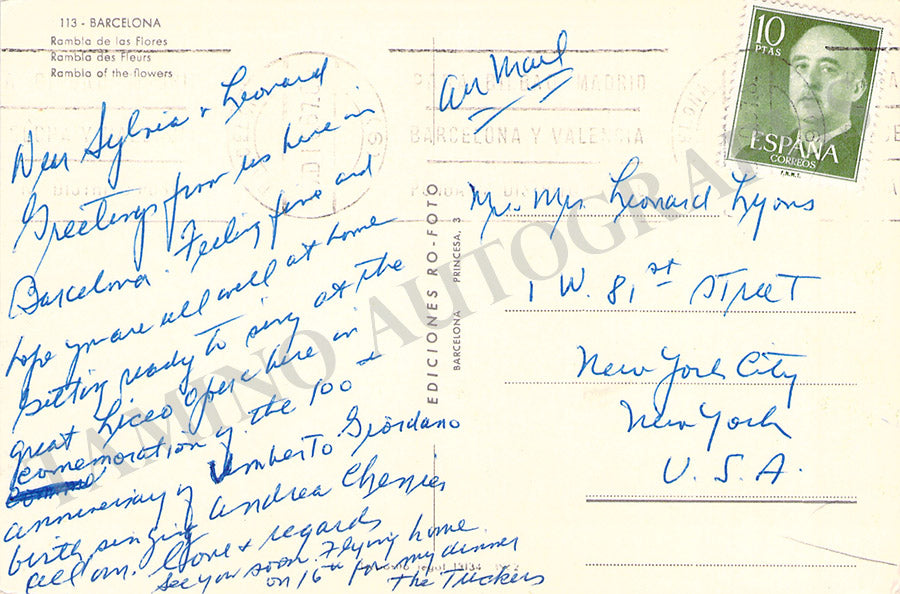 113 - BARCELONA
Rambla de las Flores
Rambla des Fleurs
Rambla of the flowers
Dear Sylvia + Leonard
Greetings from us here in
Barcelona. Feeling fine and
hope you are all well at home
Getting ready to sing at the
great Liceo Opera here in
comemoration of the 100th
anniversary of Umberto Giordano
birth singing Andrea Chenier
Love + regards
See you soon. Flying home
on 16th for my dinner
The Tuckers
EDICIONES RO-FOTO
BARCELONA PRINCESA, 3
Air Mail
BARCELONA Y VALENCIA
10
PTAS
ESPAÑA
CORREOS
F.N.M.T.
Mr. Mrs Leonard Lyons
1 W. 81st STREET
New York City
New York
U.S.A.
TAMINO AUTOGRAPHS